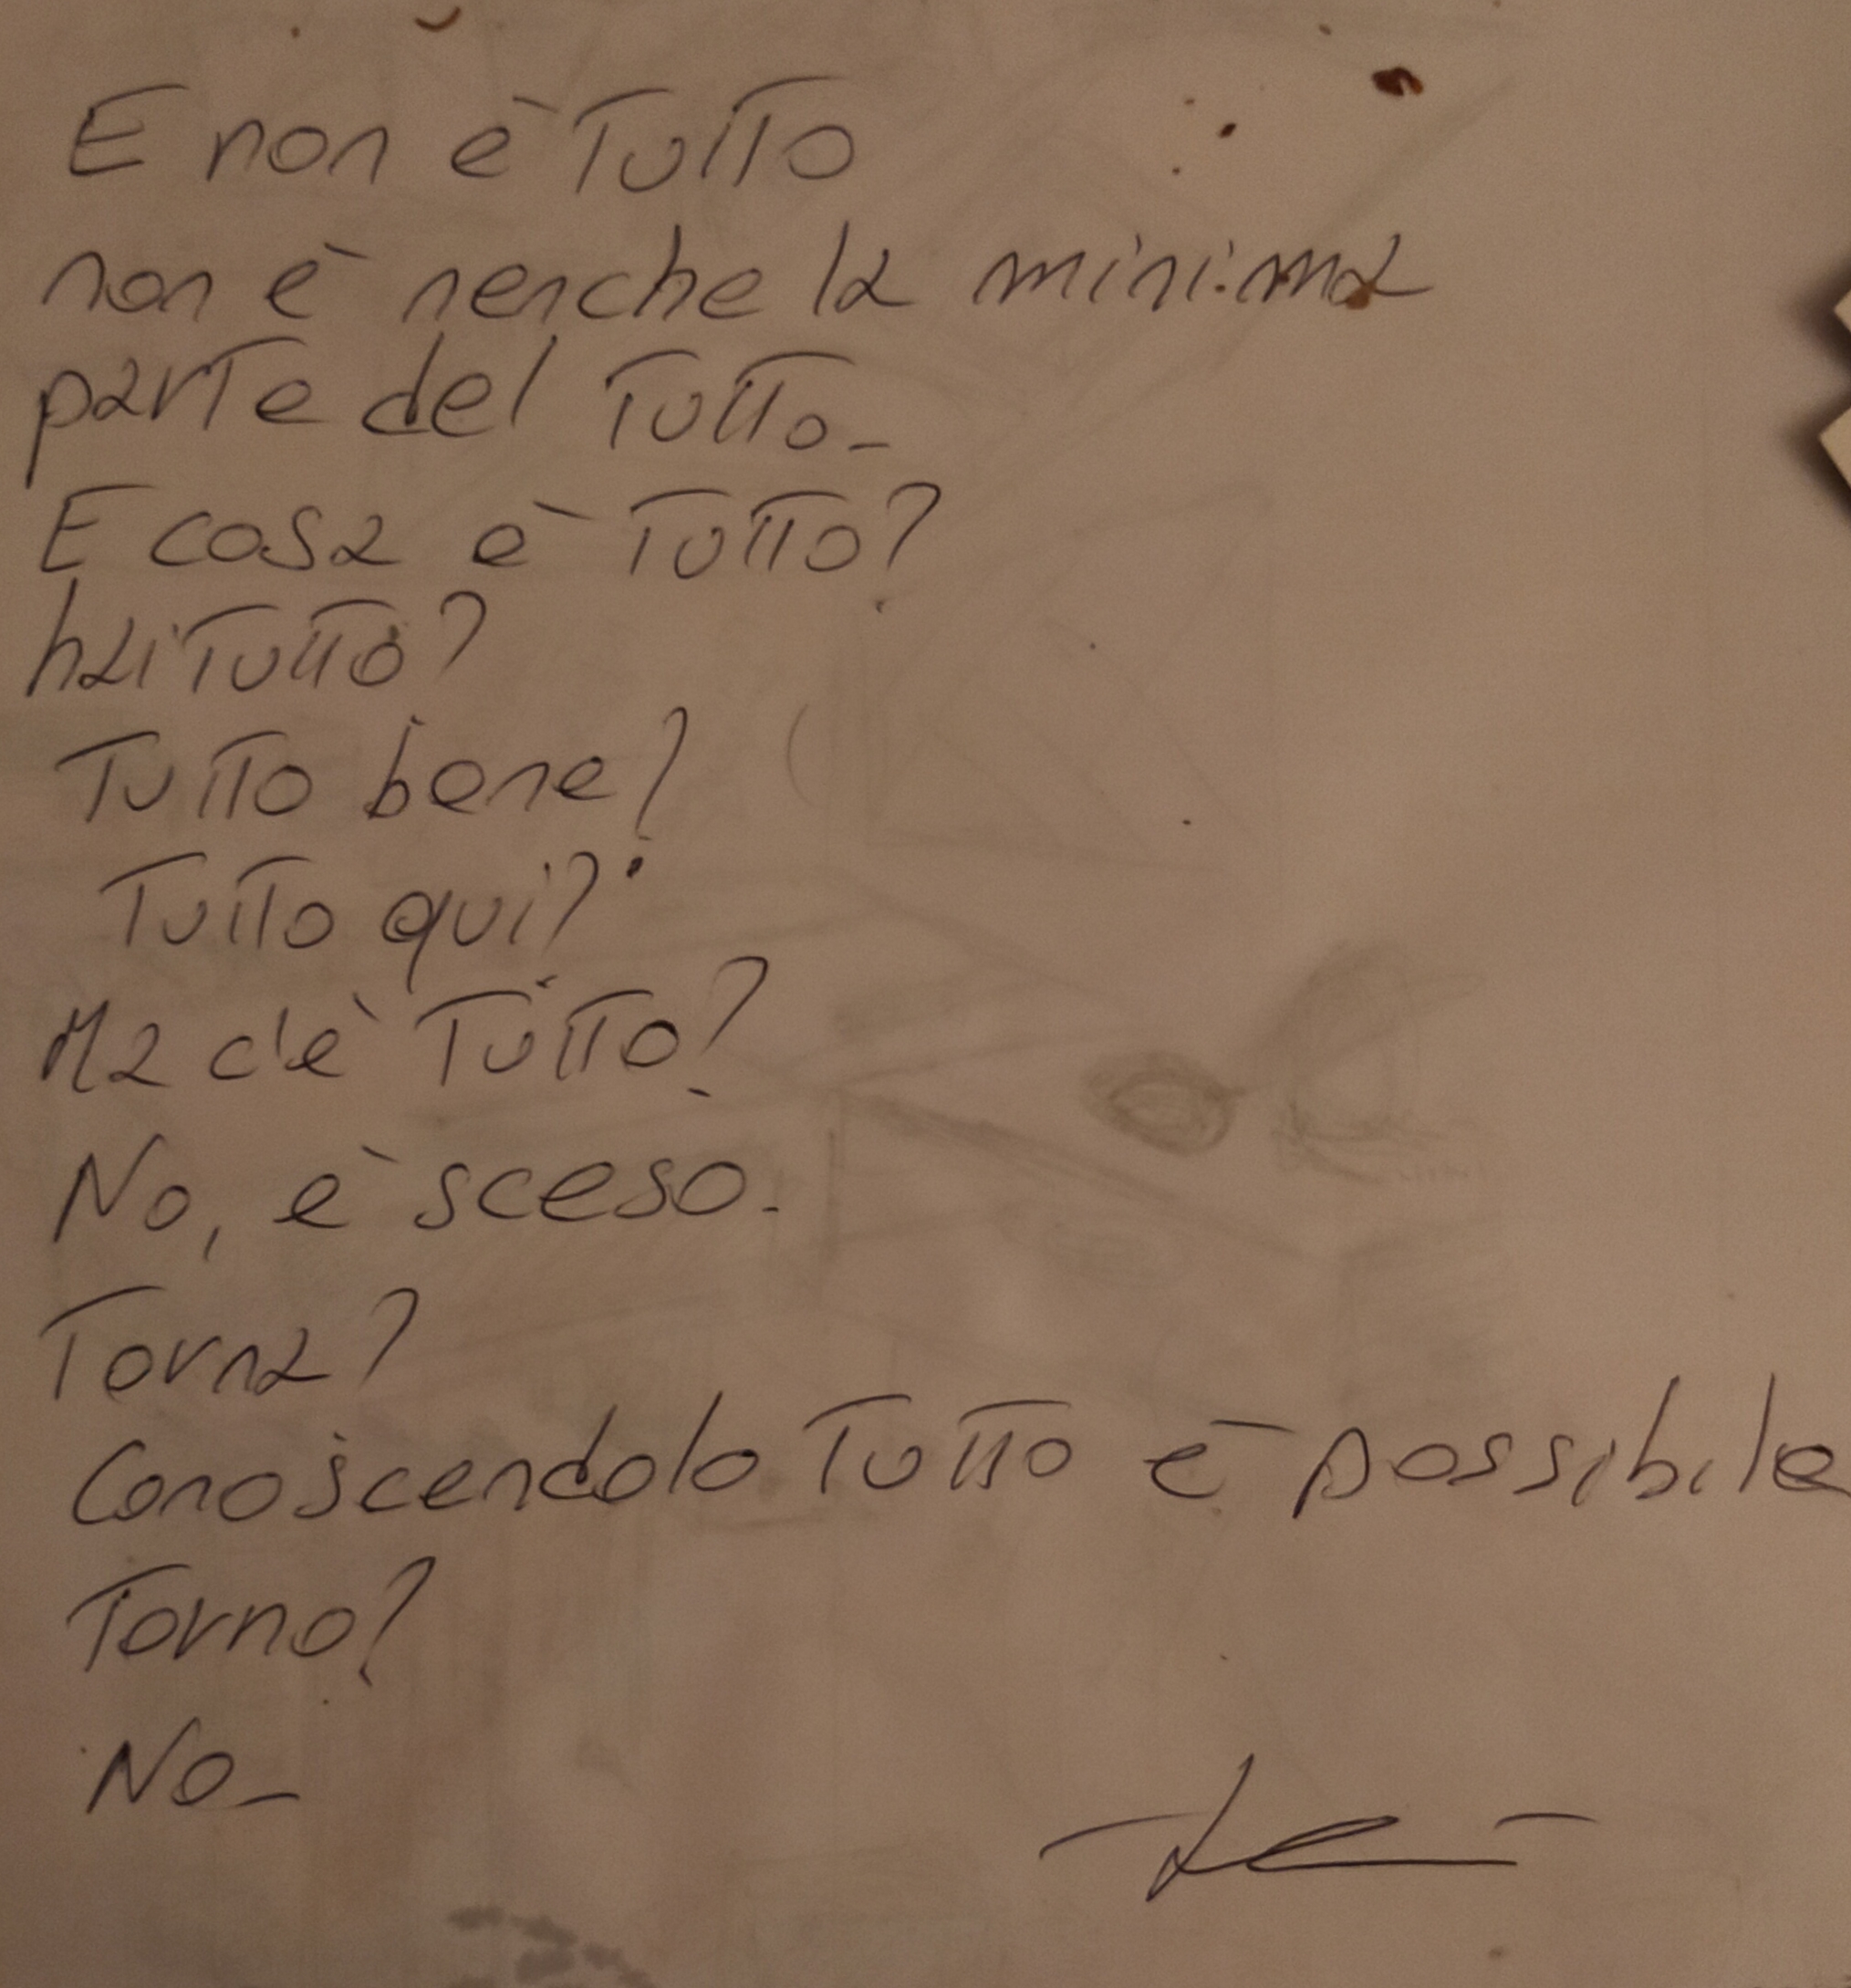 E non è Tutto
non è nenche la minima
parte del Tutto_
E cosa è Tutto?
hai Tutto?
Tutto bene?
Tutto qui?
Ma c'è Tutto?
No, è sceso.
Torna?
Conoscendolo Tutto è possibile
Torno?
No_